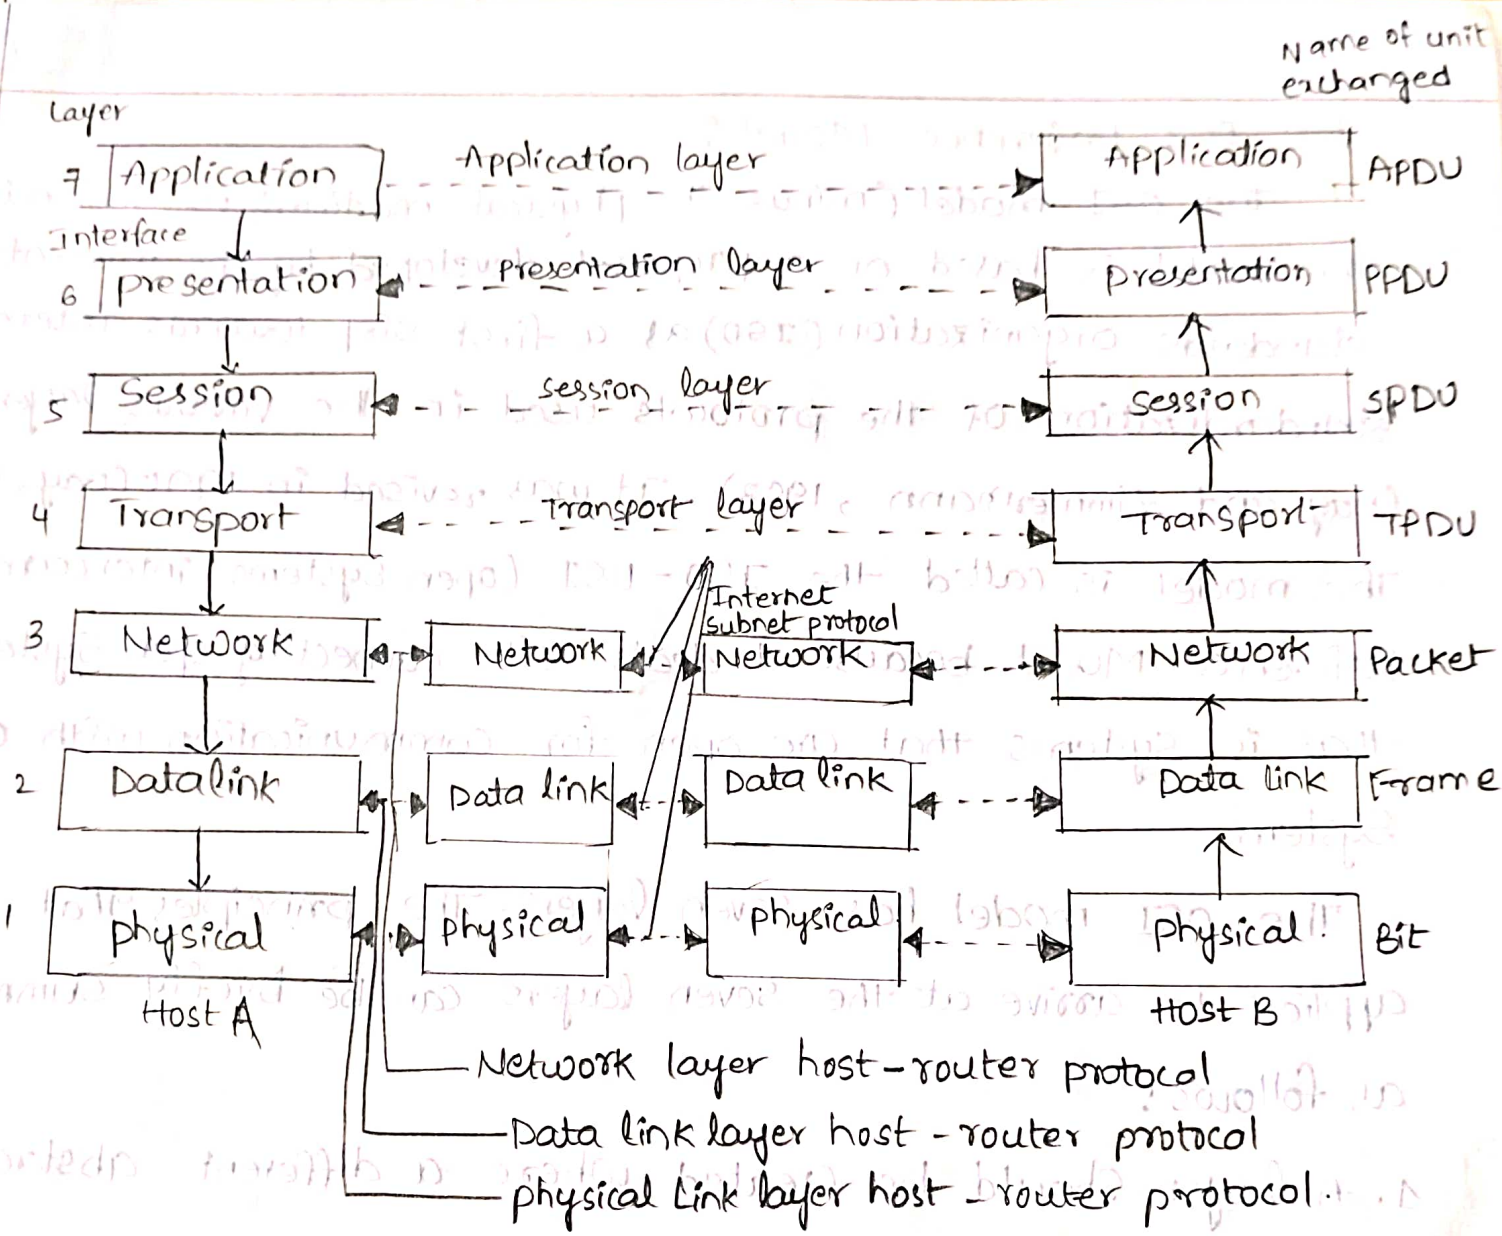 Name of unit
exchanged
Layer
7 Application Application layer Application APDU
Interface
6 presentation presentation layer presentation PPDU
5 Session session layer session SPDU
4 Transport Transport layer Transport TPDU
Internet
subnet protocol
3 Network Network Network Network Packet
2 Data link Data link Data link Data link Frame
1 physical physical physical physical Bit
Host A Host B
Network layer host-router protocol
Data link layer host-router protocol
physical Link layer host-router protocol.